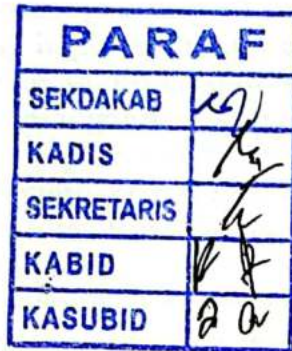 PARAF
SEKDAKAB
KADIS
SEKRETARIS
KABID
KASUBID